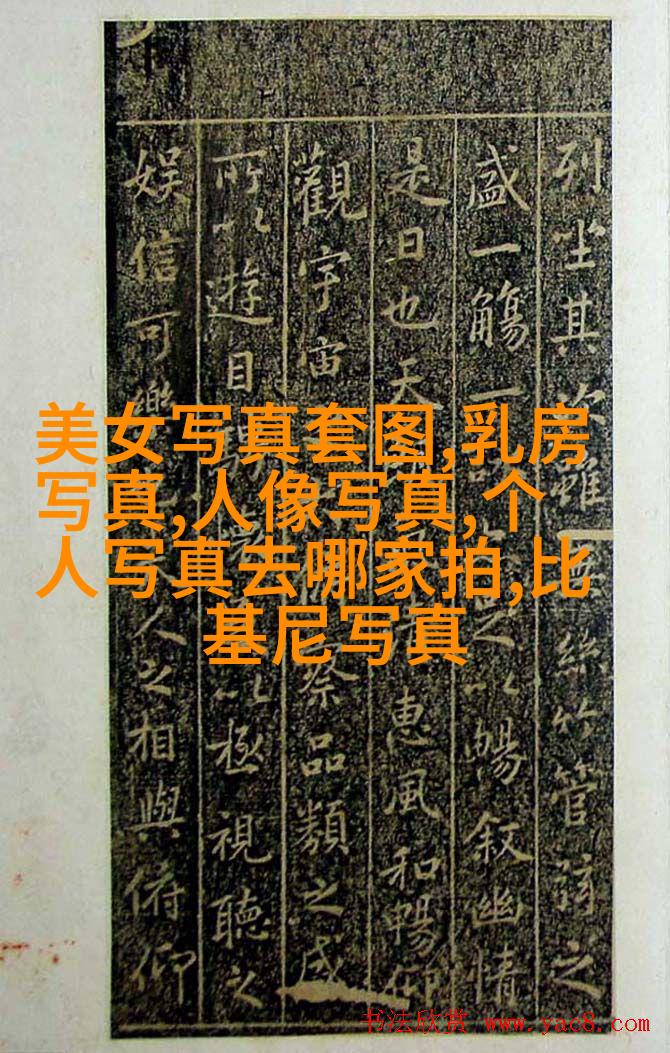 列坐其次雖無絲竹管弦之
盛一觴一以暢叙幽情
是日也天惠風和暢仰
觀宇宙察品類之盛
所以遊目以極視聽之
娱信可樂人之相與俯仰
美女写真套图,乳房
写真,人像写真,个
人写真去哪家拍,比
基尼写真
书法欣赏 www.yac8.com